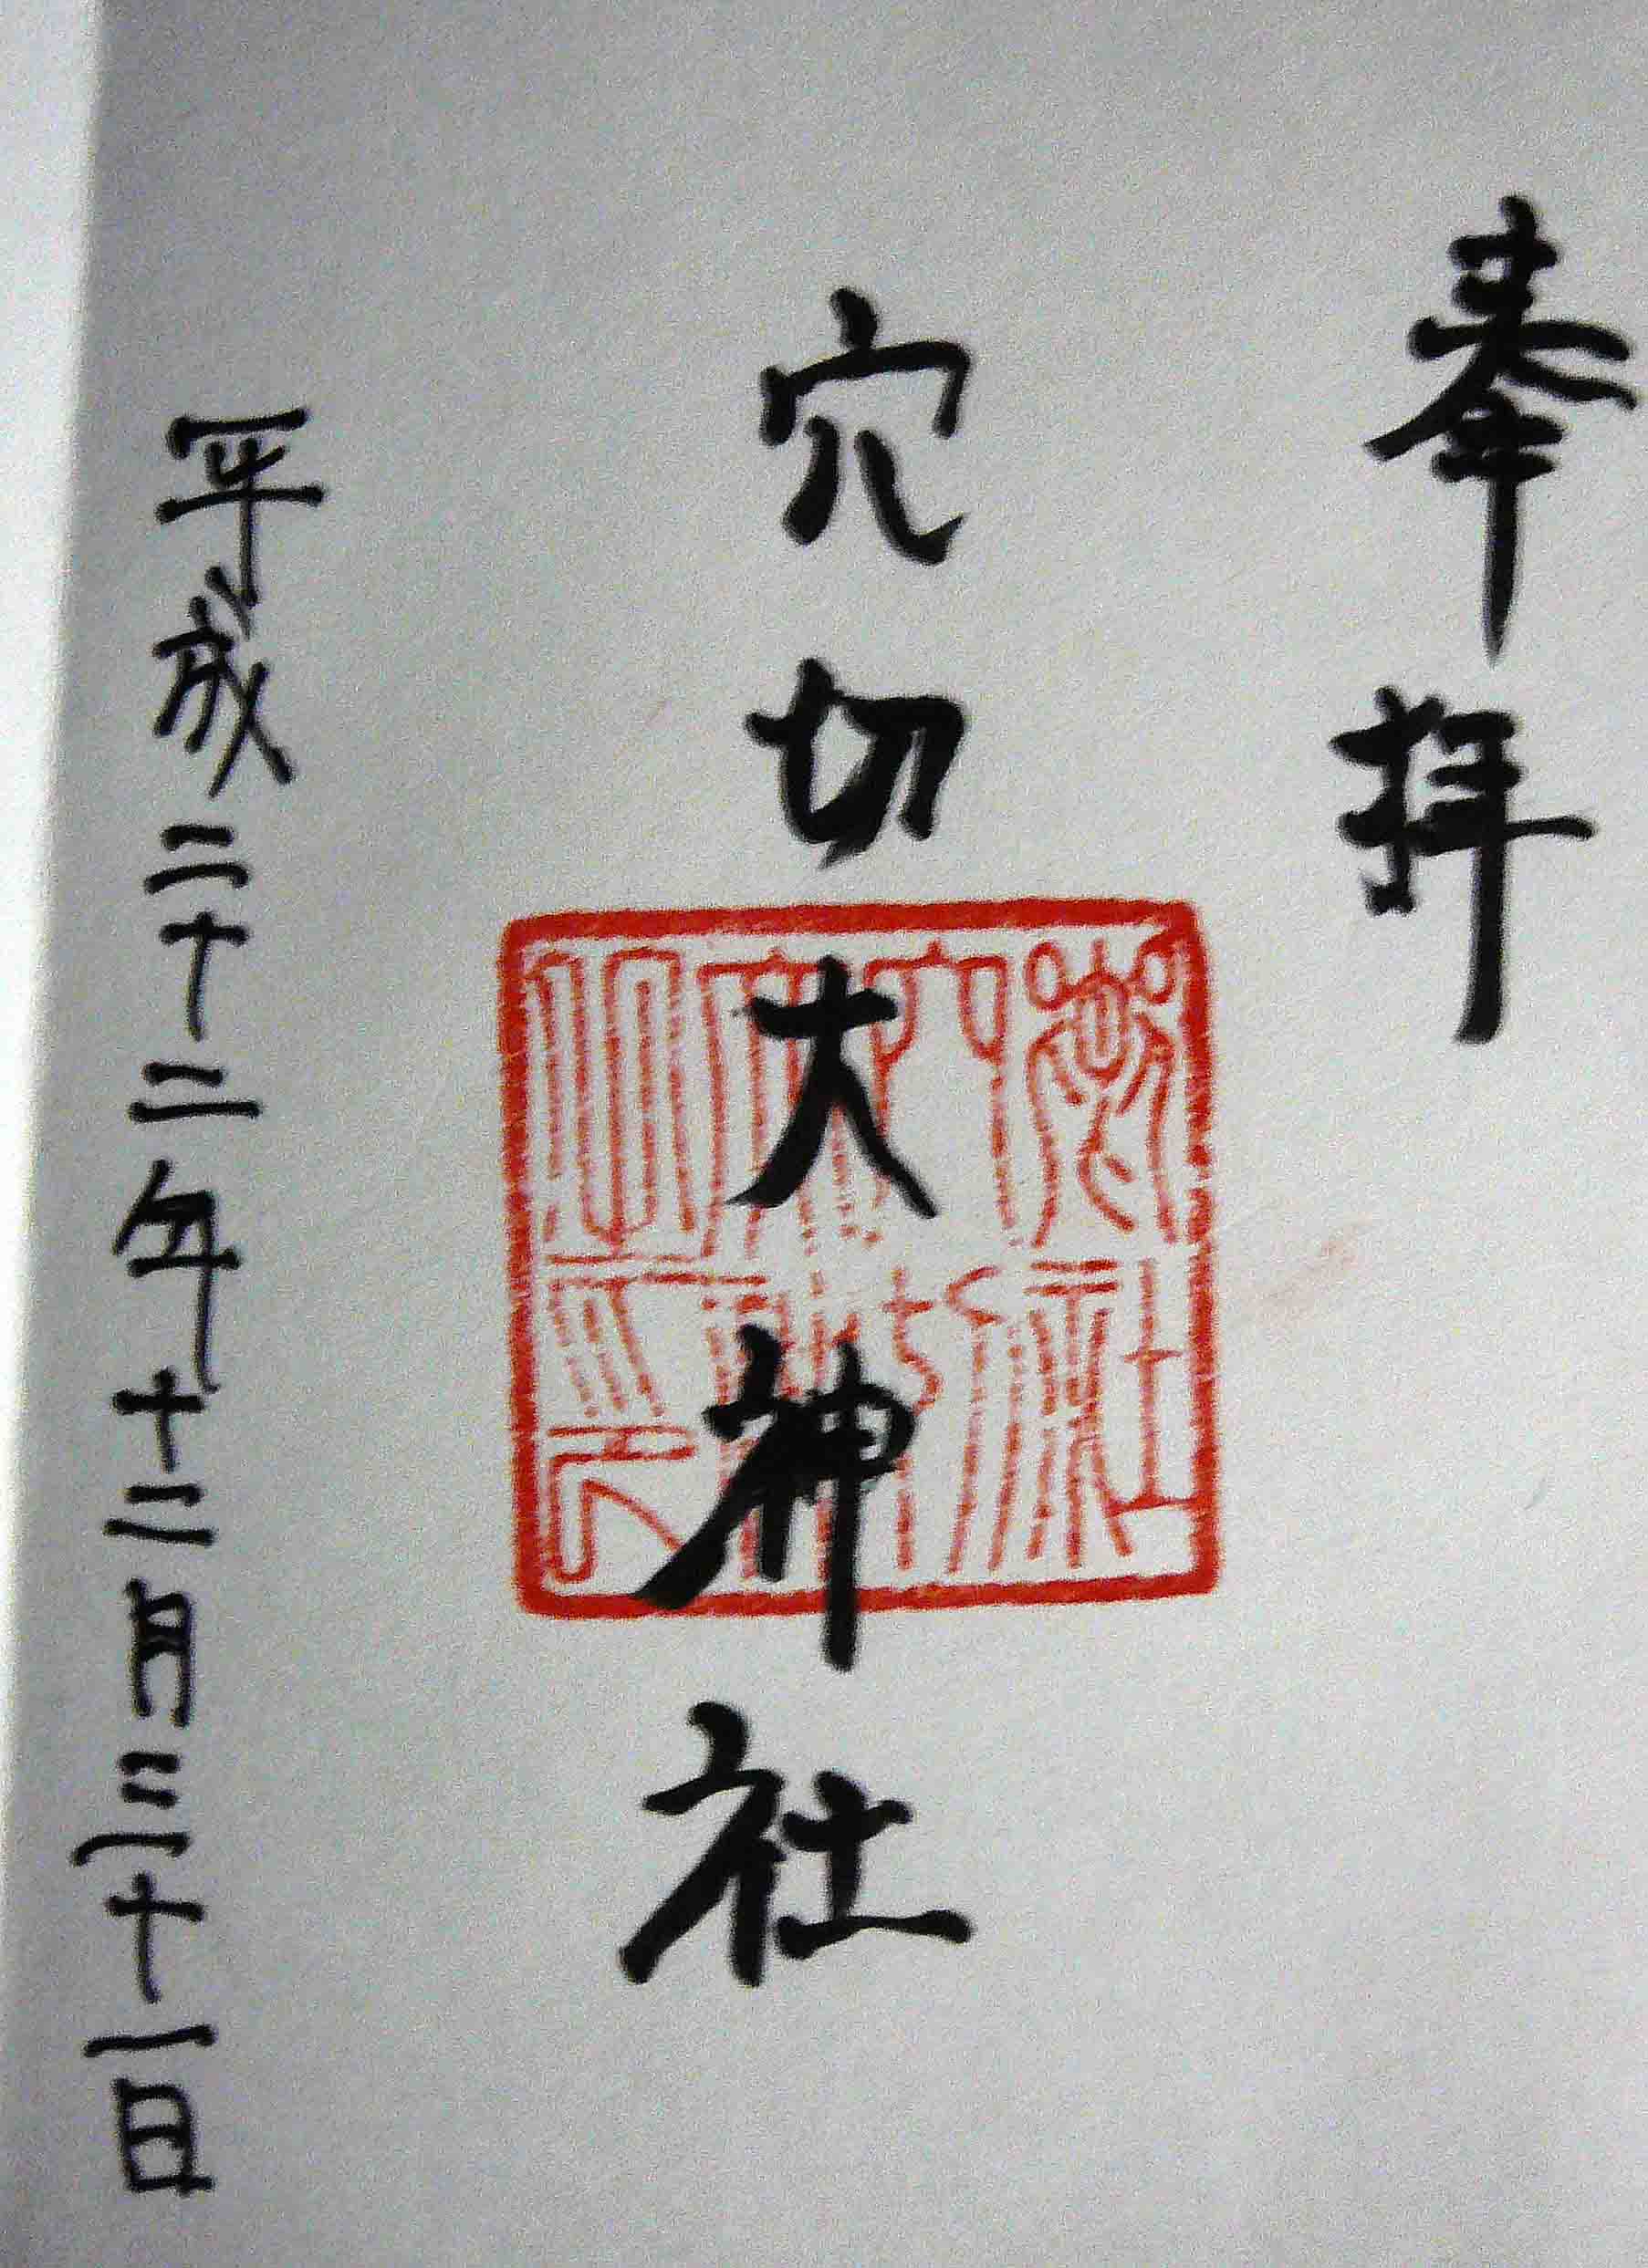 奉拝
穴切大神社
平成二十二年十二月三十一日